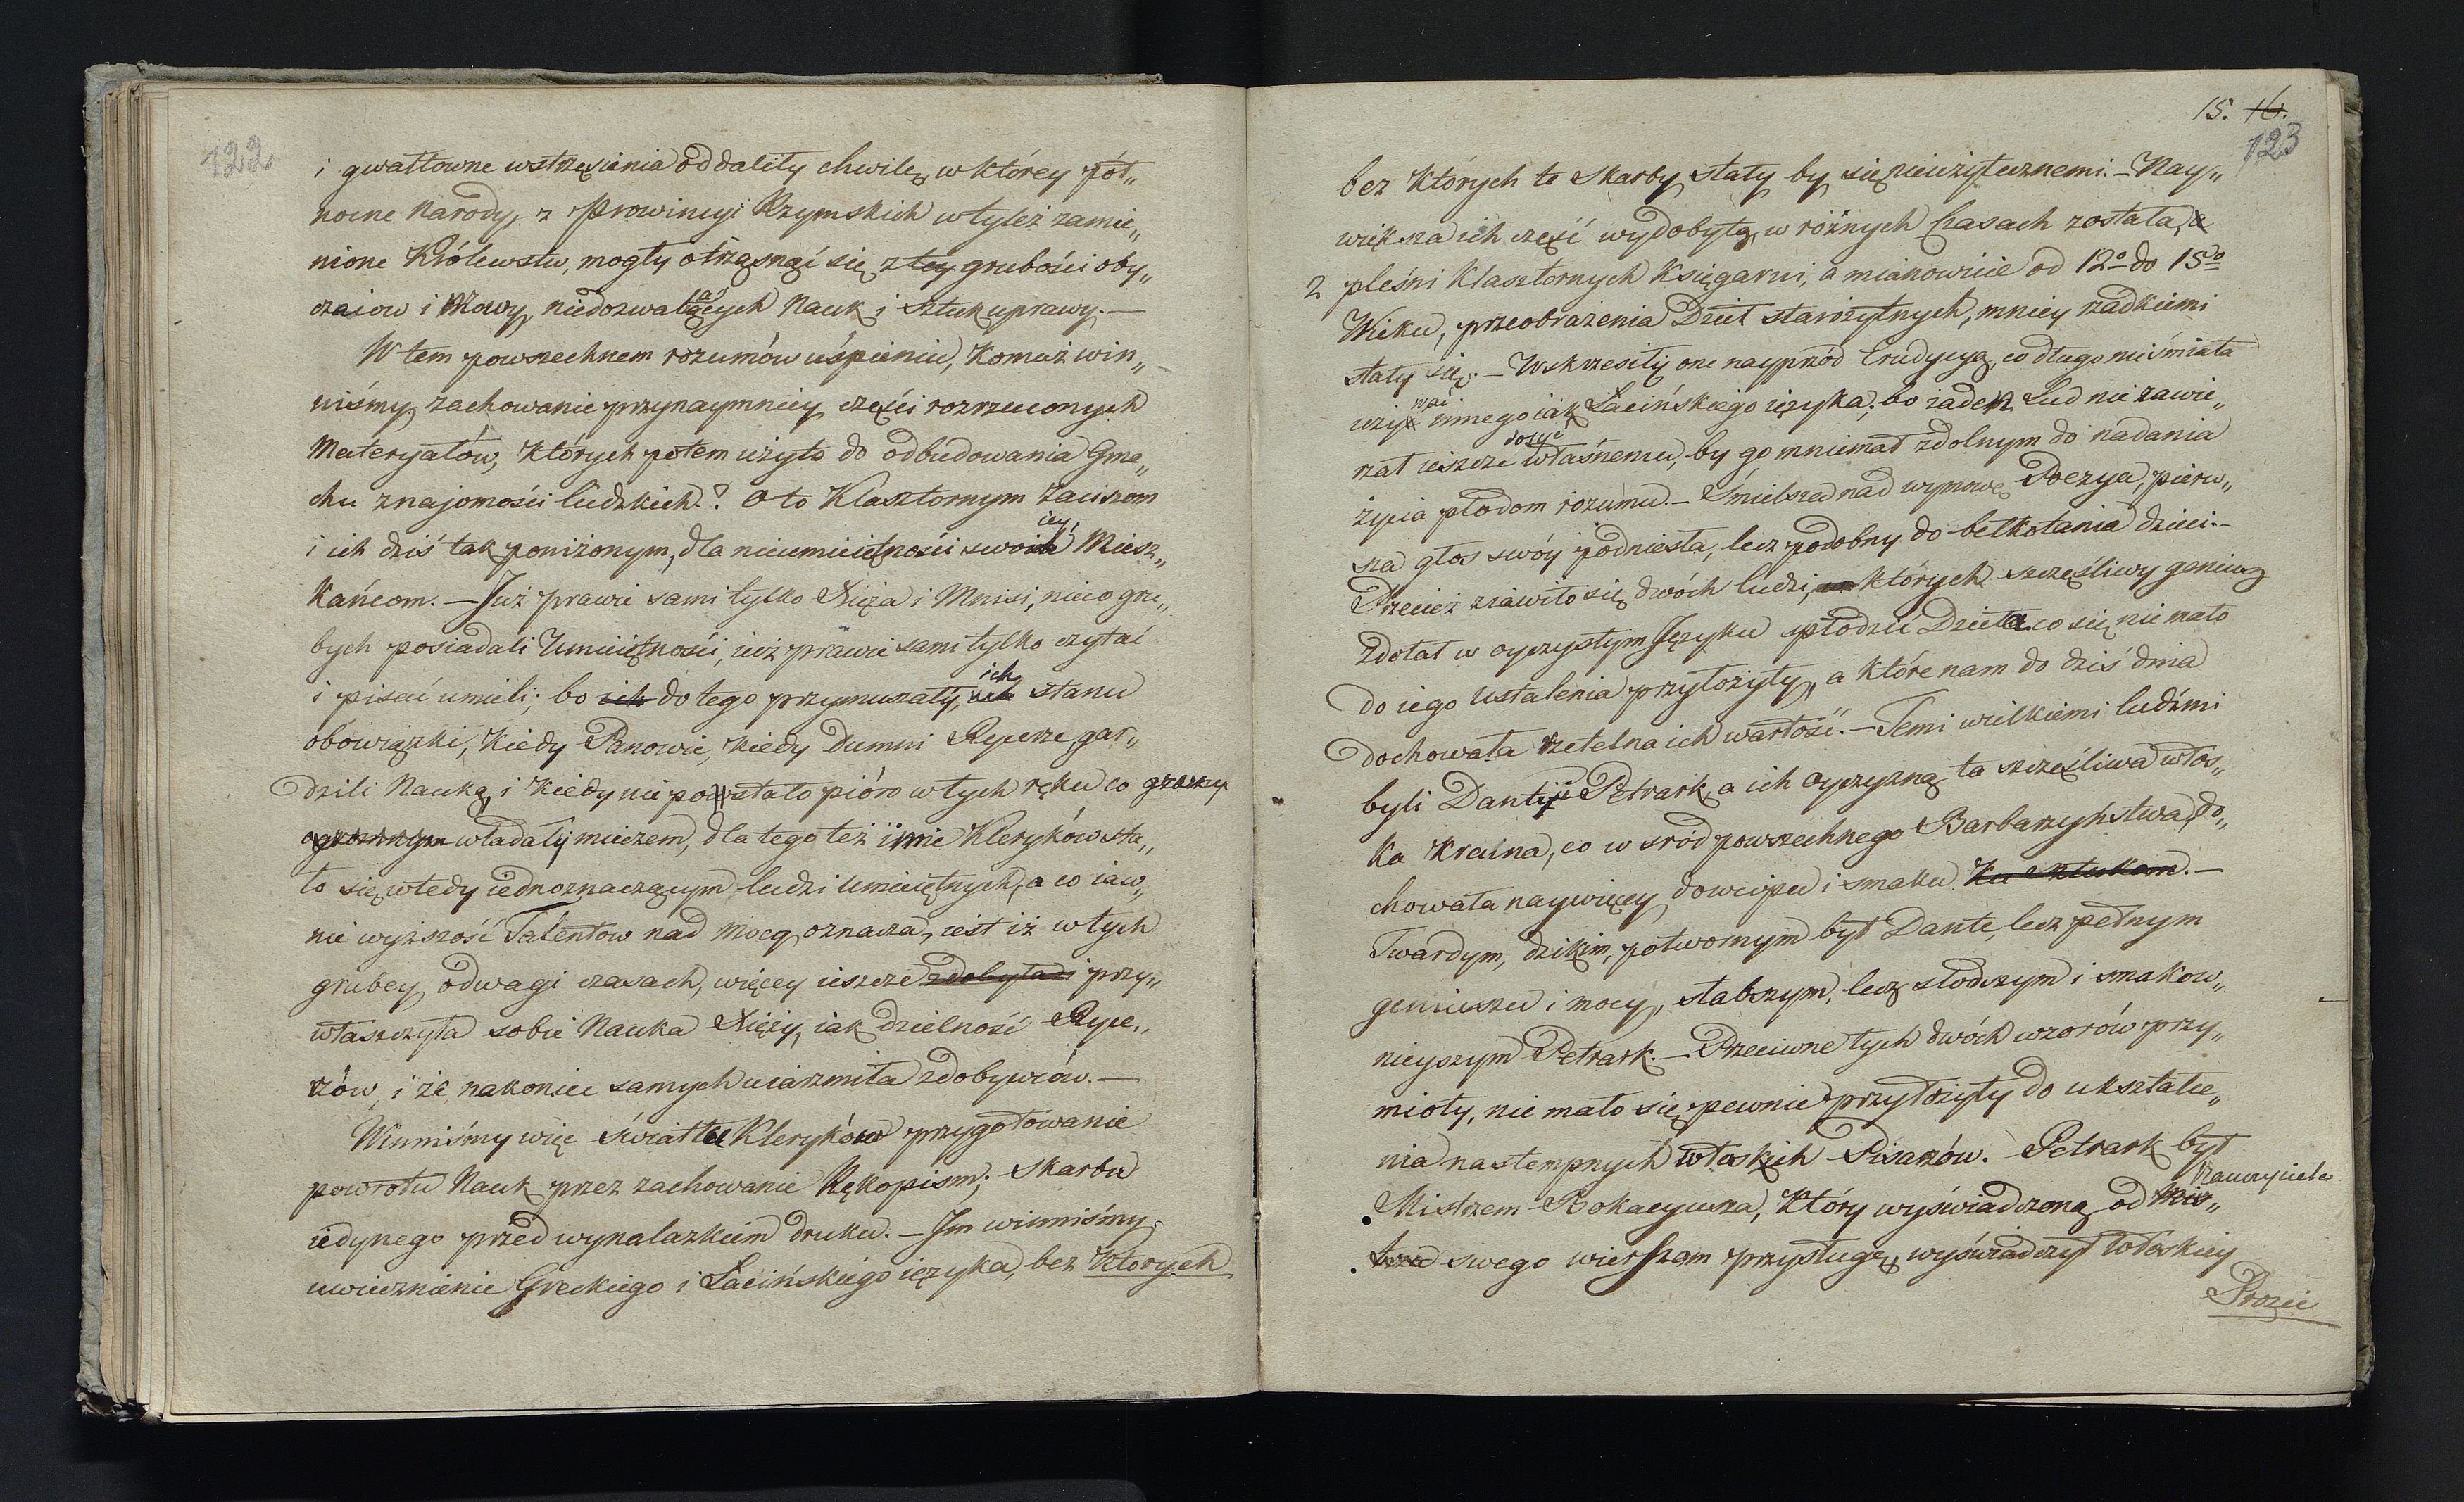 122
i gwałtowne wstrzęsienia oddaliły chwilę, w którey pół„
nocne Narody, z Prowincyi Rzymskich w tyleż zamie„
nione Królewstw, mogły otrząsnąć się z tey grubości oby„
czaiow i Mowy, niedozwalaiących Nauk i Sztuk uprawy. —
W tem powszechnem rozumów uśpieniu, komuż win„
niśmy zachowanie przynaymniey części rozrzuconych
Materyałów, których potem użyto do odbudowania Gma„
chu znajomości ludzkich? Oto Klasztornym Zaciszom
iey
i ich dziś tak poniżonym, dla nieumieiętności swoich Miesz„
kańcom. — Już prawie sami tylko Xięża i Mnisi, nieco gru„
bych posiadali Umieiętności, iuż prawie sami tylko czytać
ich
i pisać umieli; bo ich do tego przymuszały, stanu
obowiązki, kiedy Panowie, kiedy Dumni Rycerze, gar„
dzili Nauką, i kiedy nie powstało pióro w tych ręku co
władały mieczem, dla tego też imie Kleryków sta„
ło się wtedy iednoznaczącym ludzi Umieiętnych, a co iaw„
nie wyższość Talentow nad mocą oznacza, iest iż w tych
grubey odwagi czasach, więcey ieszcze zdobyła i przy„
właszczyła sobie Nauka Xięży, iak dzielność Ryce„
rzów, i że nakoniec samych uiarzmiła zdobywców. —
Winniśmy więc światłu Kleryków przygotowanie
powrotu Nauk przez zachowanie Rękopism; skarbu
iedynego przed wynalazkiem druku. — Im winniśmy
uwiecznienie Greckiego i Łacińskiego ięzyka, bez których
15. 16.
123
bez których te skarby stały by się nieużytecznemi. — Nay„
większa ich część wydobyta, w różnych czasach została,
z pleśni Klasztornych Księgarni, a mianowicie od 12º do 15º
Wieku, przeobrażenia Dzieł starożytnych, mniey rzadkiemi
stały się. — Wskrzesiły one nayprzód Erudycyą, co długo nieśmiała
użyć innego iak Łacińskiego ięzyka; bo żaden Lud nie zawie„
dosyć
rzał ieszcze własnemu, by go mniemał zdolnym do nadania
życia płodom rozumu. — Śmielsza nad wymowę Poezya, pierw„
sza głos swóy podniosła, lecz podobny do bełkotania dzieci. —
Przecież ziawiło się dwóch ludzi, których szczęśliwy geniusz
zdołał w oyczystym Języku spłodzić Dzieła co się nie mało
do iego ustalenia przyłożyły, a które nam do dziś dnia
dochowała rzetelna ich wartość. — Temi wielkiemi ludźmi
byli Dant i Petrark, a ich oyczyzną ta szczęśliwa włos„
ka kraina, co wsród powszechnego Barbarzyństwa, do„
chowała naywięcey dowcipu i smaku ku sztukom. —
Twardym, dzikim, potwornym był Dante, lecz pełnym
geniuszu i mocy, słabszym, lecz słodszym i smakow„
nieyszym Petrark. — Przeciwne tych dwóch wzorów przy„
mioty, nie mało się pewnie przyłożyły do ukształce„
nia nastempnych włoskich Pisarzów. Petrark był
Nauczyciela
Mistrzem Bokacyusza, który wyświadczoną od Mis„
trza swego wierszom przysługę, wyświadczył włoskiey
Prozie